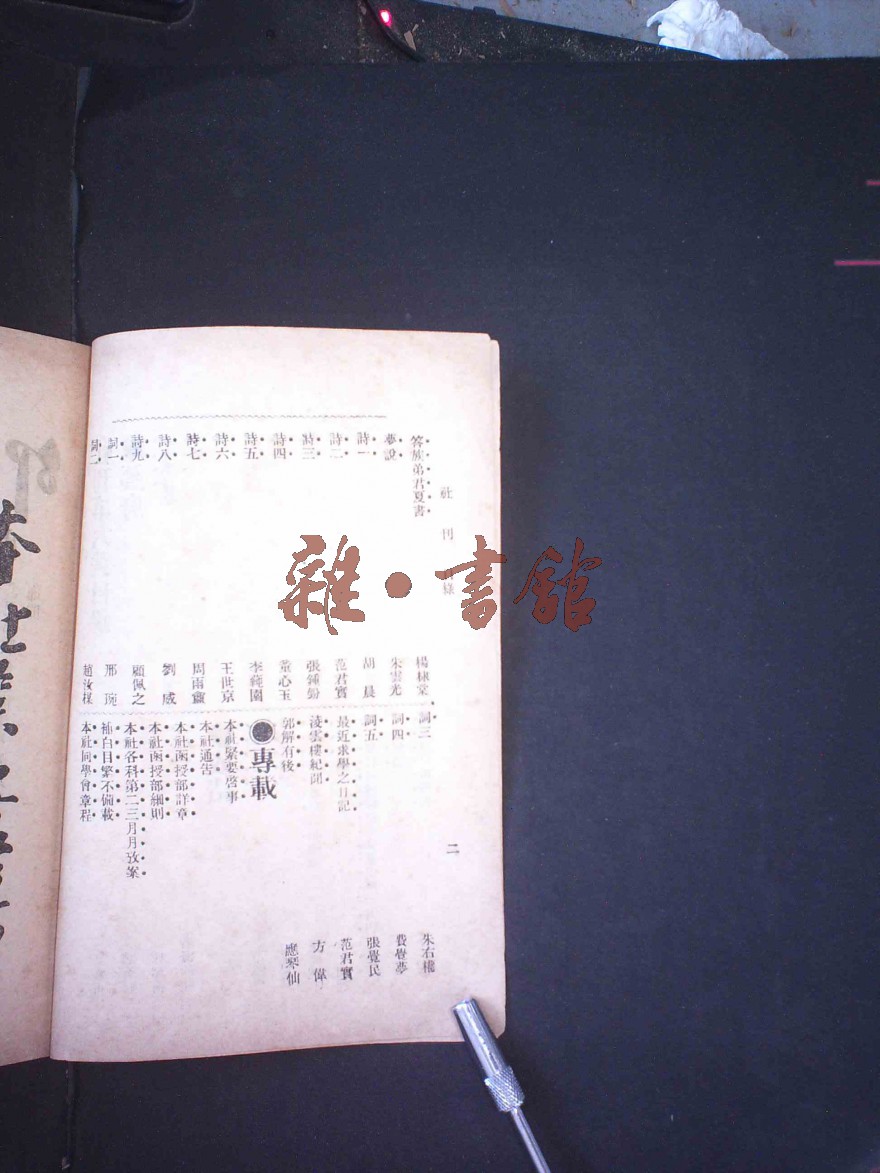 社刊 錄
答族弟君夏書 楊棣棠
夢說 朱雲光
詩一 胡晨
詩二 范君實
詩三 張鍾
詩四 董心玉
詩五 李蒓園
詩六 王世京
詩七 周雨
詩八 劉威
詩九 顧佩之
詞一 邢琬
詞二 趙汝
詞三 朱右
詞四 費覺夢
詞五 張覺民
最近求學之日記 范君實
淩雲樓紀聞 方偉
郭解有後 應琴仙
專載
本社緊要啓事
本社通告
本社函授部詳章
本社函授部細則
本社各科第二三月月攷案
補白目繁不備載
本社同學會章程
二
雜·書館